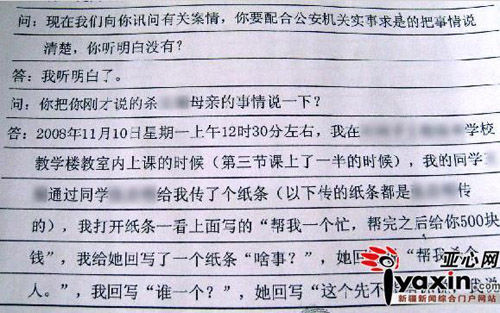 问：现在我们向你讯问有关案情，你要配合公安机关实事求是的把事情说
清楚，你听明白没有？
答：我听明白了。
问：你把你刚才说的杀 母亲的事情说一下？
答：2008年11月10日星期一上午12时30分左右，我在 学校
教学楼教室内上课的时候（第三节课上了一半的时候），我的同学
通过同学 给我传了个纸条（以下传的纸条都是 传
的），我打开纸条一看上面写的“帮我一个忙，帮完之后给你500块
钱”，我给她回写了一个纸条“啥事？”，她回 “帮我 个
人。”，我回写“谁一个？”，她回写“这个先不
亚心网
iyaxin.com
新疆新闻综合门户网站